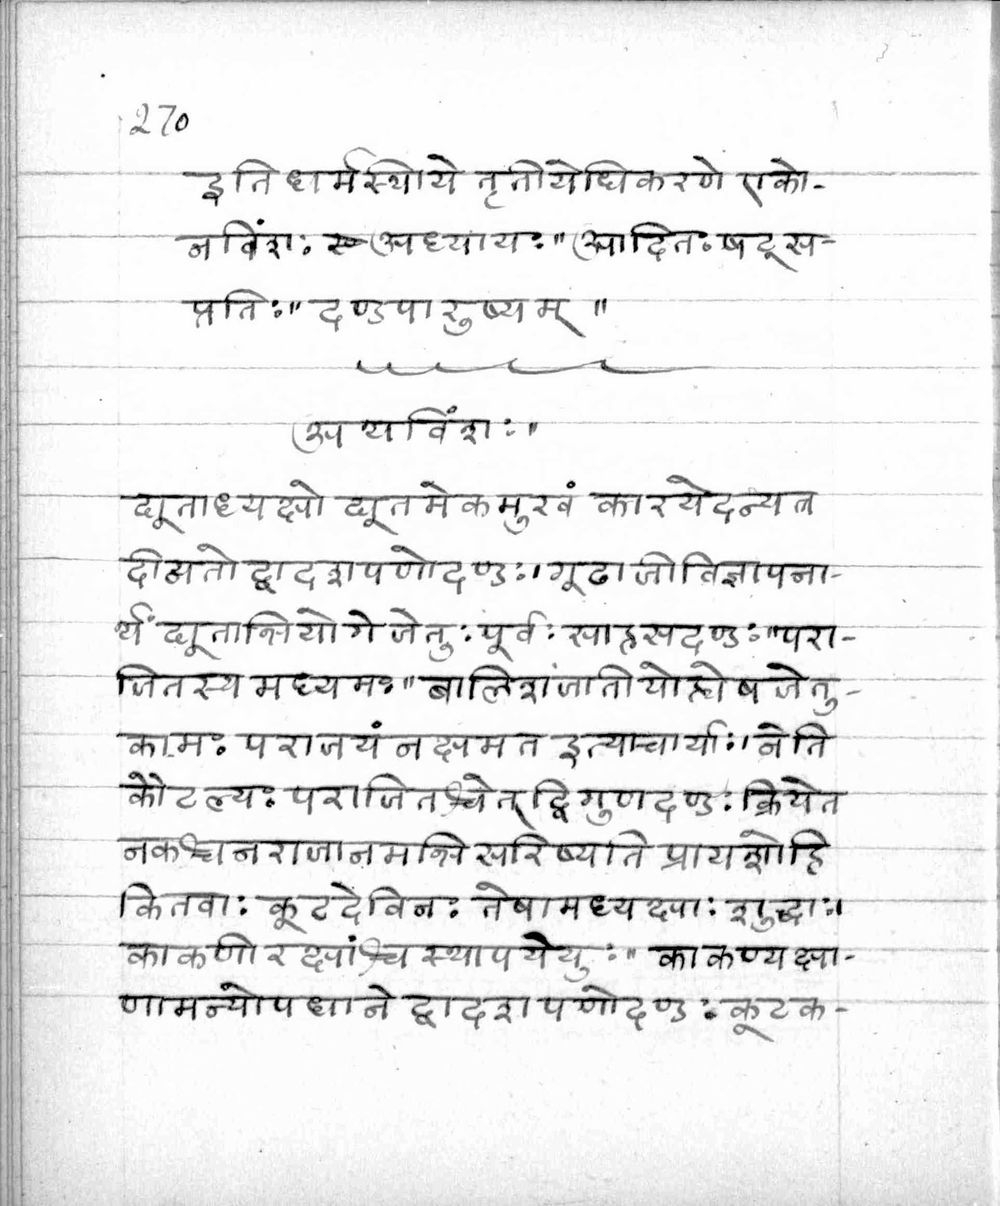 270
इति धर्मस्थीये तृतीयेधिकरणे एको-
नविंशः अध्यायः" आदितः षट्स-
प्ततिः" दण्डपारुष्यम्"
अथविंशः"
द्यूताध्यक्षो द्यूतमेकमुखं कारयेदन्यत्र
दीव्यतो द्वादशपणोदण्डः। गूढाजीविज्ञापना-
र्थं द्यूताभियोगे जेतुः पूर्वः साहसदण्डः" परा-
जितस्य मध्यमः" बालिशजातीयोह्येष जेतु-
कामः पराजयं नक्षमत इत्याचार्याः। नेति
कौटल्यः पराजितश्चेत् द्विगुणदण्डः क्रियेत
नकश्चनराजानमभिसरिष्यति प्रायशोहि
कितवाः कूटदेविनः तेषामध्यक्षाः शुद्धाः।
काकणीरक्षांश्च स्थापयेयुः" काकण्यक्षा-
णामन्योपधाने द्वादशपणोदण्डः कूटक-